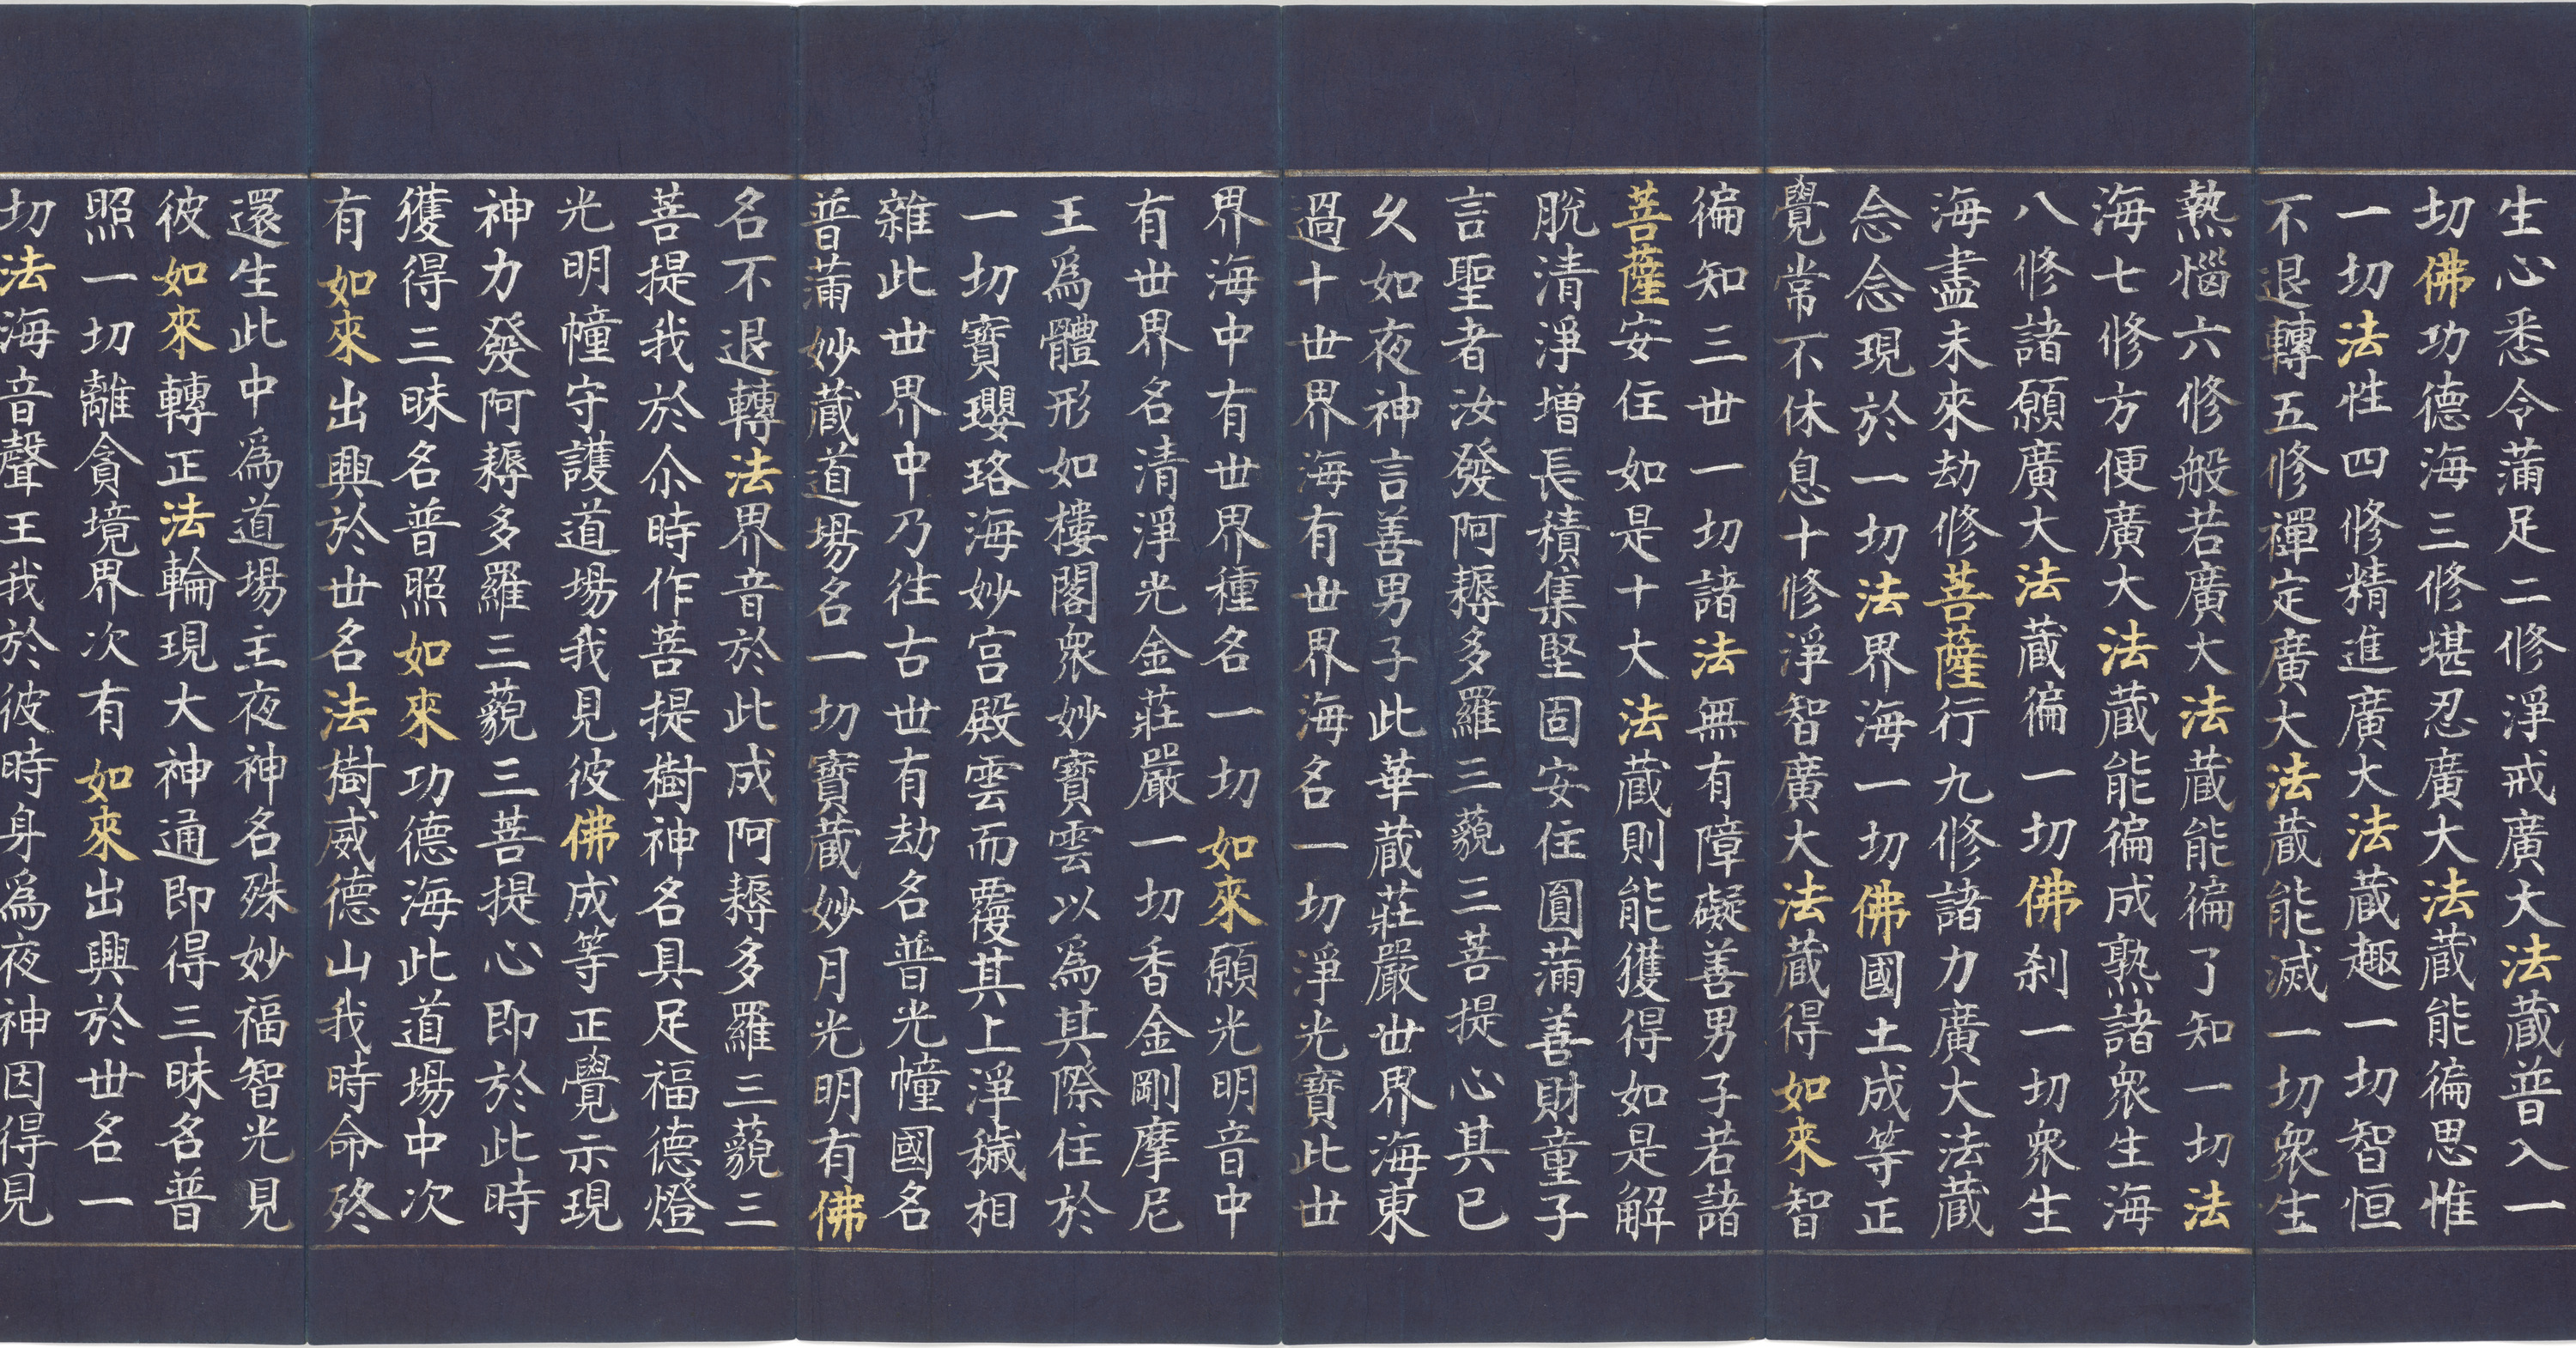 生心悉令蒲足二修淨戒廣大法蔵普入一
切佛功德海三修堪忍廣大法蔵能徧思惟
一切法性四修精進廣大法蔵趣一切智恒
不退轉五修禪定廣大法蔵能滅一切衆生
熱惱六修般若廣大法蔵能徧了知一切法
海七修方便廣大法蔵能徧成熟諸衆生海
八修諸願廣大法蔵徧一切佛刹一切衆生
海盡未來劫修菩薩行九修諸力廣大法蔵
念念現於一切法界海一切佛國土成等正
覺常不休息十修淨智廣大法蔵得如來智
徧知三世一切諸法無有障礙善男子若諸
菩薩安住如是十大法蔵則能獲得如是解
脫清淨增長積集堅固安住圓蒲善財童子
言聖者汝發阿耨多羅三藐三菩提心其已
久如夜神言善男子此華蔵莊嚴世界海東
過十世界海有世界海名一切淨光寶此世
界海中有世界種名一切如來願光明音中
有世界名清淨光金莊嚴一切香金剛摩尼
王爲體形如樓閣衆妙寶雲以爲其際住於
一切寶瓔珞海妙宫殿雲而覆其上淨穢相
雜此世界中乃往古世有劫名普光幢國名
普蒲妙蔵道場名一切寶蔵妙月光明有佛
名不退轉法界音於此成阿耨多羅三藐三
菩提我於尒時作菩提樹神名具足福德燈
光明幢守護道場我見彼佛成等正覺示現
神力發阿耨多羅三藐三菩提心即於此時
獲得三昧名普照如來功德海此道場中次
有如來出興於世名法樹威德山我時命終
還生此中爲道場主夜神名殊妙福智光見
彼如來轉正法輪現大神通即得三昧名普
照一切離貪境界次有如來出興於世名一
切法海音聲王我於彼時身爲夜神因得見